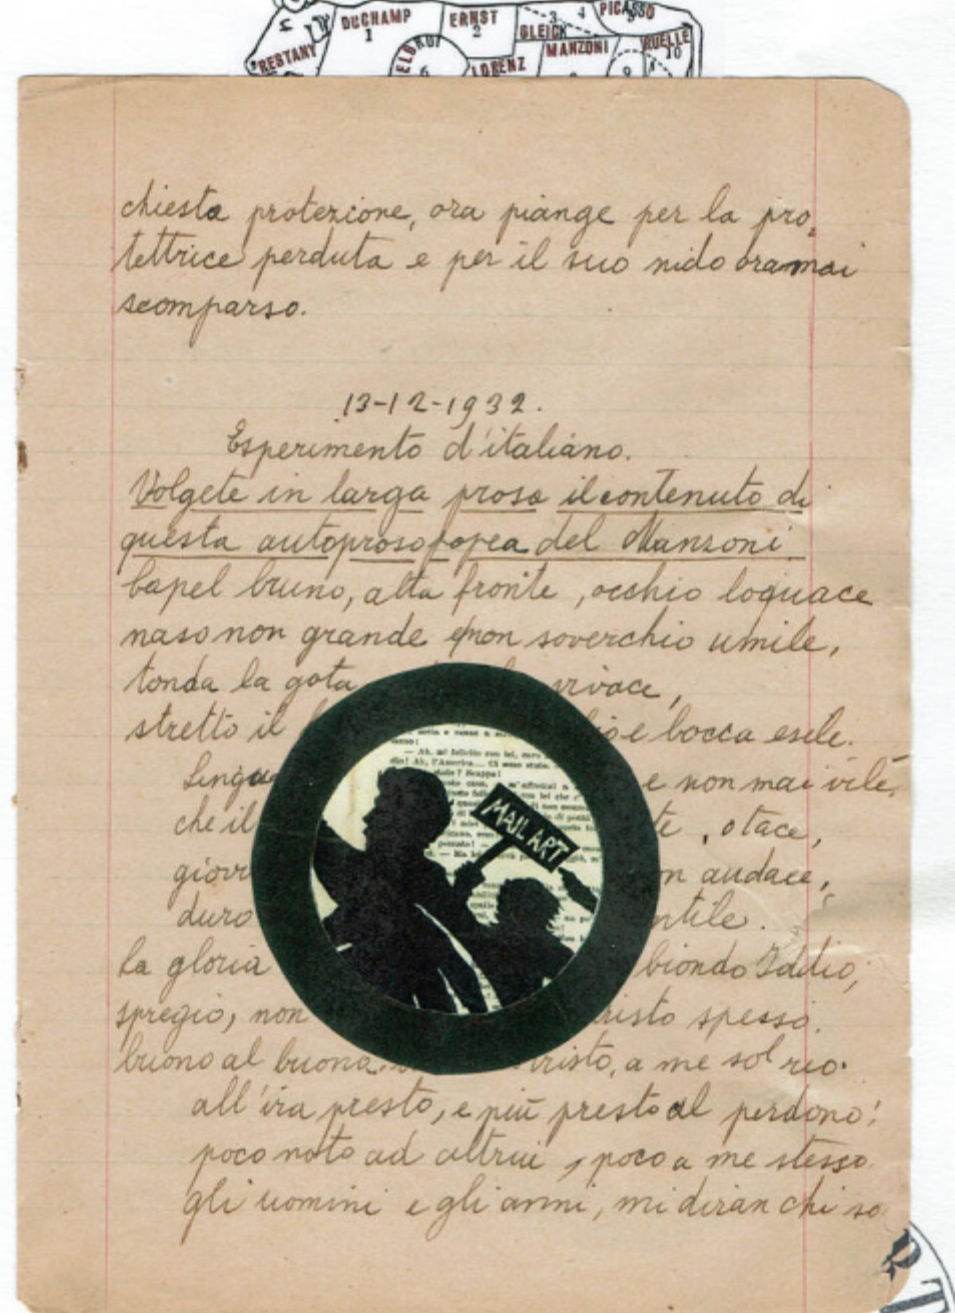 RESTANY DUCHAMP 1 ERNST 2 3 4 PICASSO
GLEICH MANZONI RUELLE 10
LORENZ 6 9
chiesta protezione, ora piange per la pro,
tettrice perduta e per il suo nido oramai
scomparso.
13-12-1932.
Esperimento d'italiano.
Volgete in larga prosa il contenuto di
questa autoprosopopea del Manzoni.
Capel bruno, alta fronte, occhio loquace
naso non grande e non soverchio umile,
tonda la gota vivace,
stretto il e bocca esile.
Lingu e non mai vile,
che il te, o tace,
giov n audace,
duro ntile.
La gloria biondo Iddio;
spregio, non risto spesso.
buono al buono, tristo, a me sol rio.
all'ira presto, e più presto al perdono!
poco noto ad altrui, poco a me stesso
gli uomini e gli anni, mi diran chi so
— Ah, mi felicito con lei, caro
MAIL ART
RT